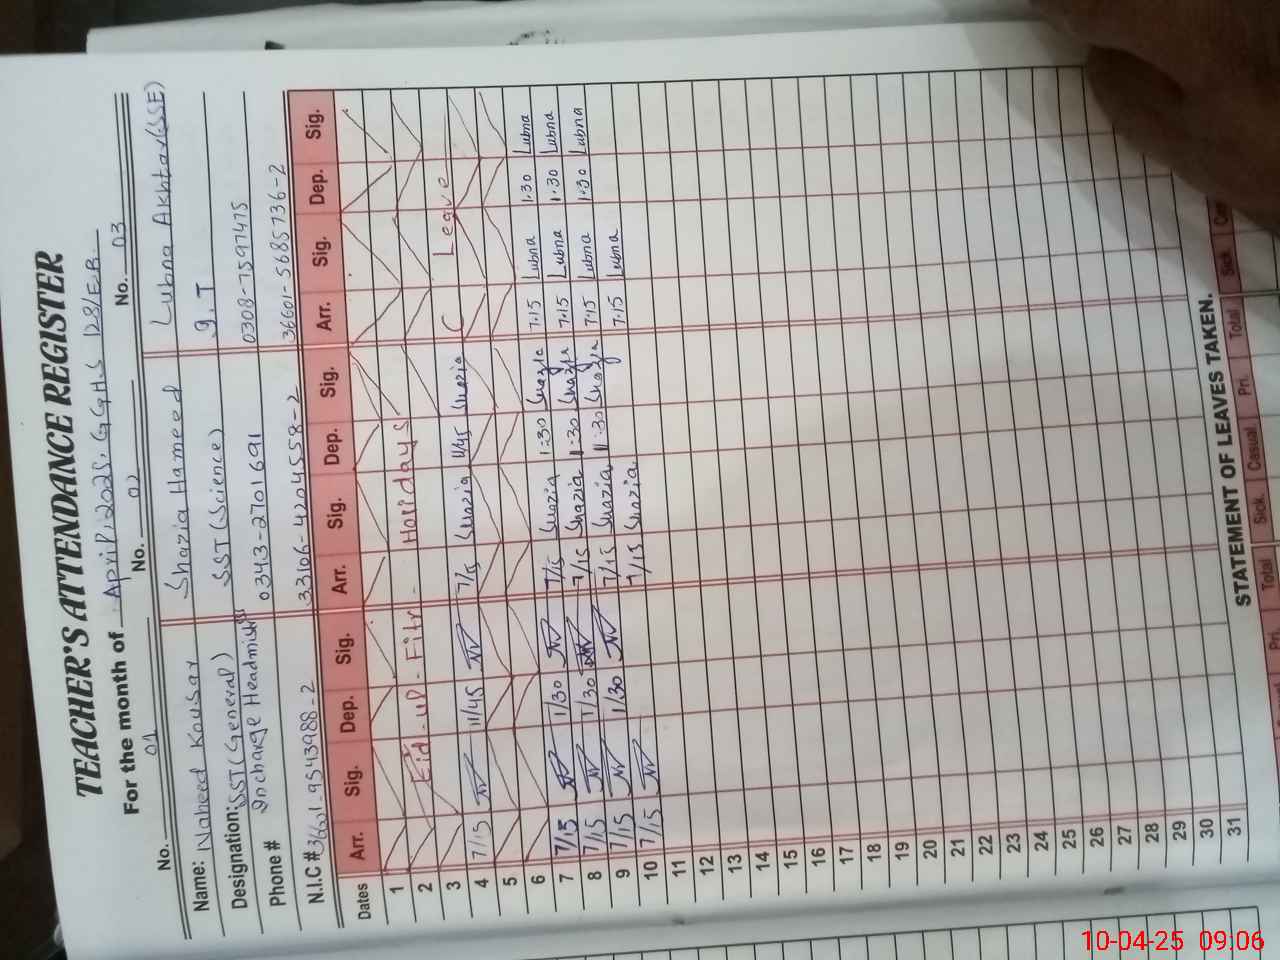 TEACHER'S ATTENDANCE REGISTER
For the month of April, 2025. G.G.H.S 128/E.B.
No. 01 No. 02 No. 03
Name: Naheed Kousar Shazia Hameed Lubna Akhtar (SSE)
Designation: SST (General) SST (Science) g.T
Incharge Headmistress
Phone # 0343-2701691 0308-7597475
N.I.C # 36601-9543988-2 33106-4204558-2 36601-5685736-2
Dates Arr. Sig. Dep. Sig. Arr. Sig. Dep. Sig. Arr. Sig. Dep. Sig.
1
2 Eid-ul-Fitr- Holidays
3
4 7/15 11/45 7/15 Shazia 11/45 Shazia C Leave
5
6
7 7/15 1/30 7/15 Shazia 1:30 Shazia 7.15 Lubna 1.30 Lubna
8 7/15 1/30 7/15 Shazia 1:30 Shazia 7.15 Lubna 1.30 Lubna
9 7/15 1/30 7/15 Shazia 11:30 Shazia 7.15 Lubna 1.30 Lubna
10 7/15 7/15 Shazia 7.15 Lubna
11
12
13
14
15
16
17
18
19
20
21
22
23
24
25
26
27
28
29
30
31
STATEMENT OF LEAVES TAKEN.
Pri. Total Sick. Casual. Pri. Total Sick
10-04-25 09:06